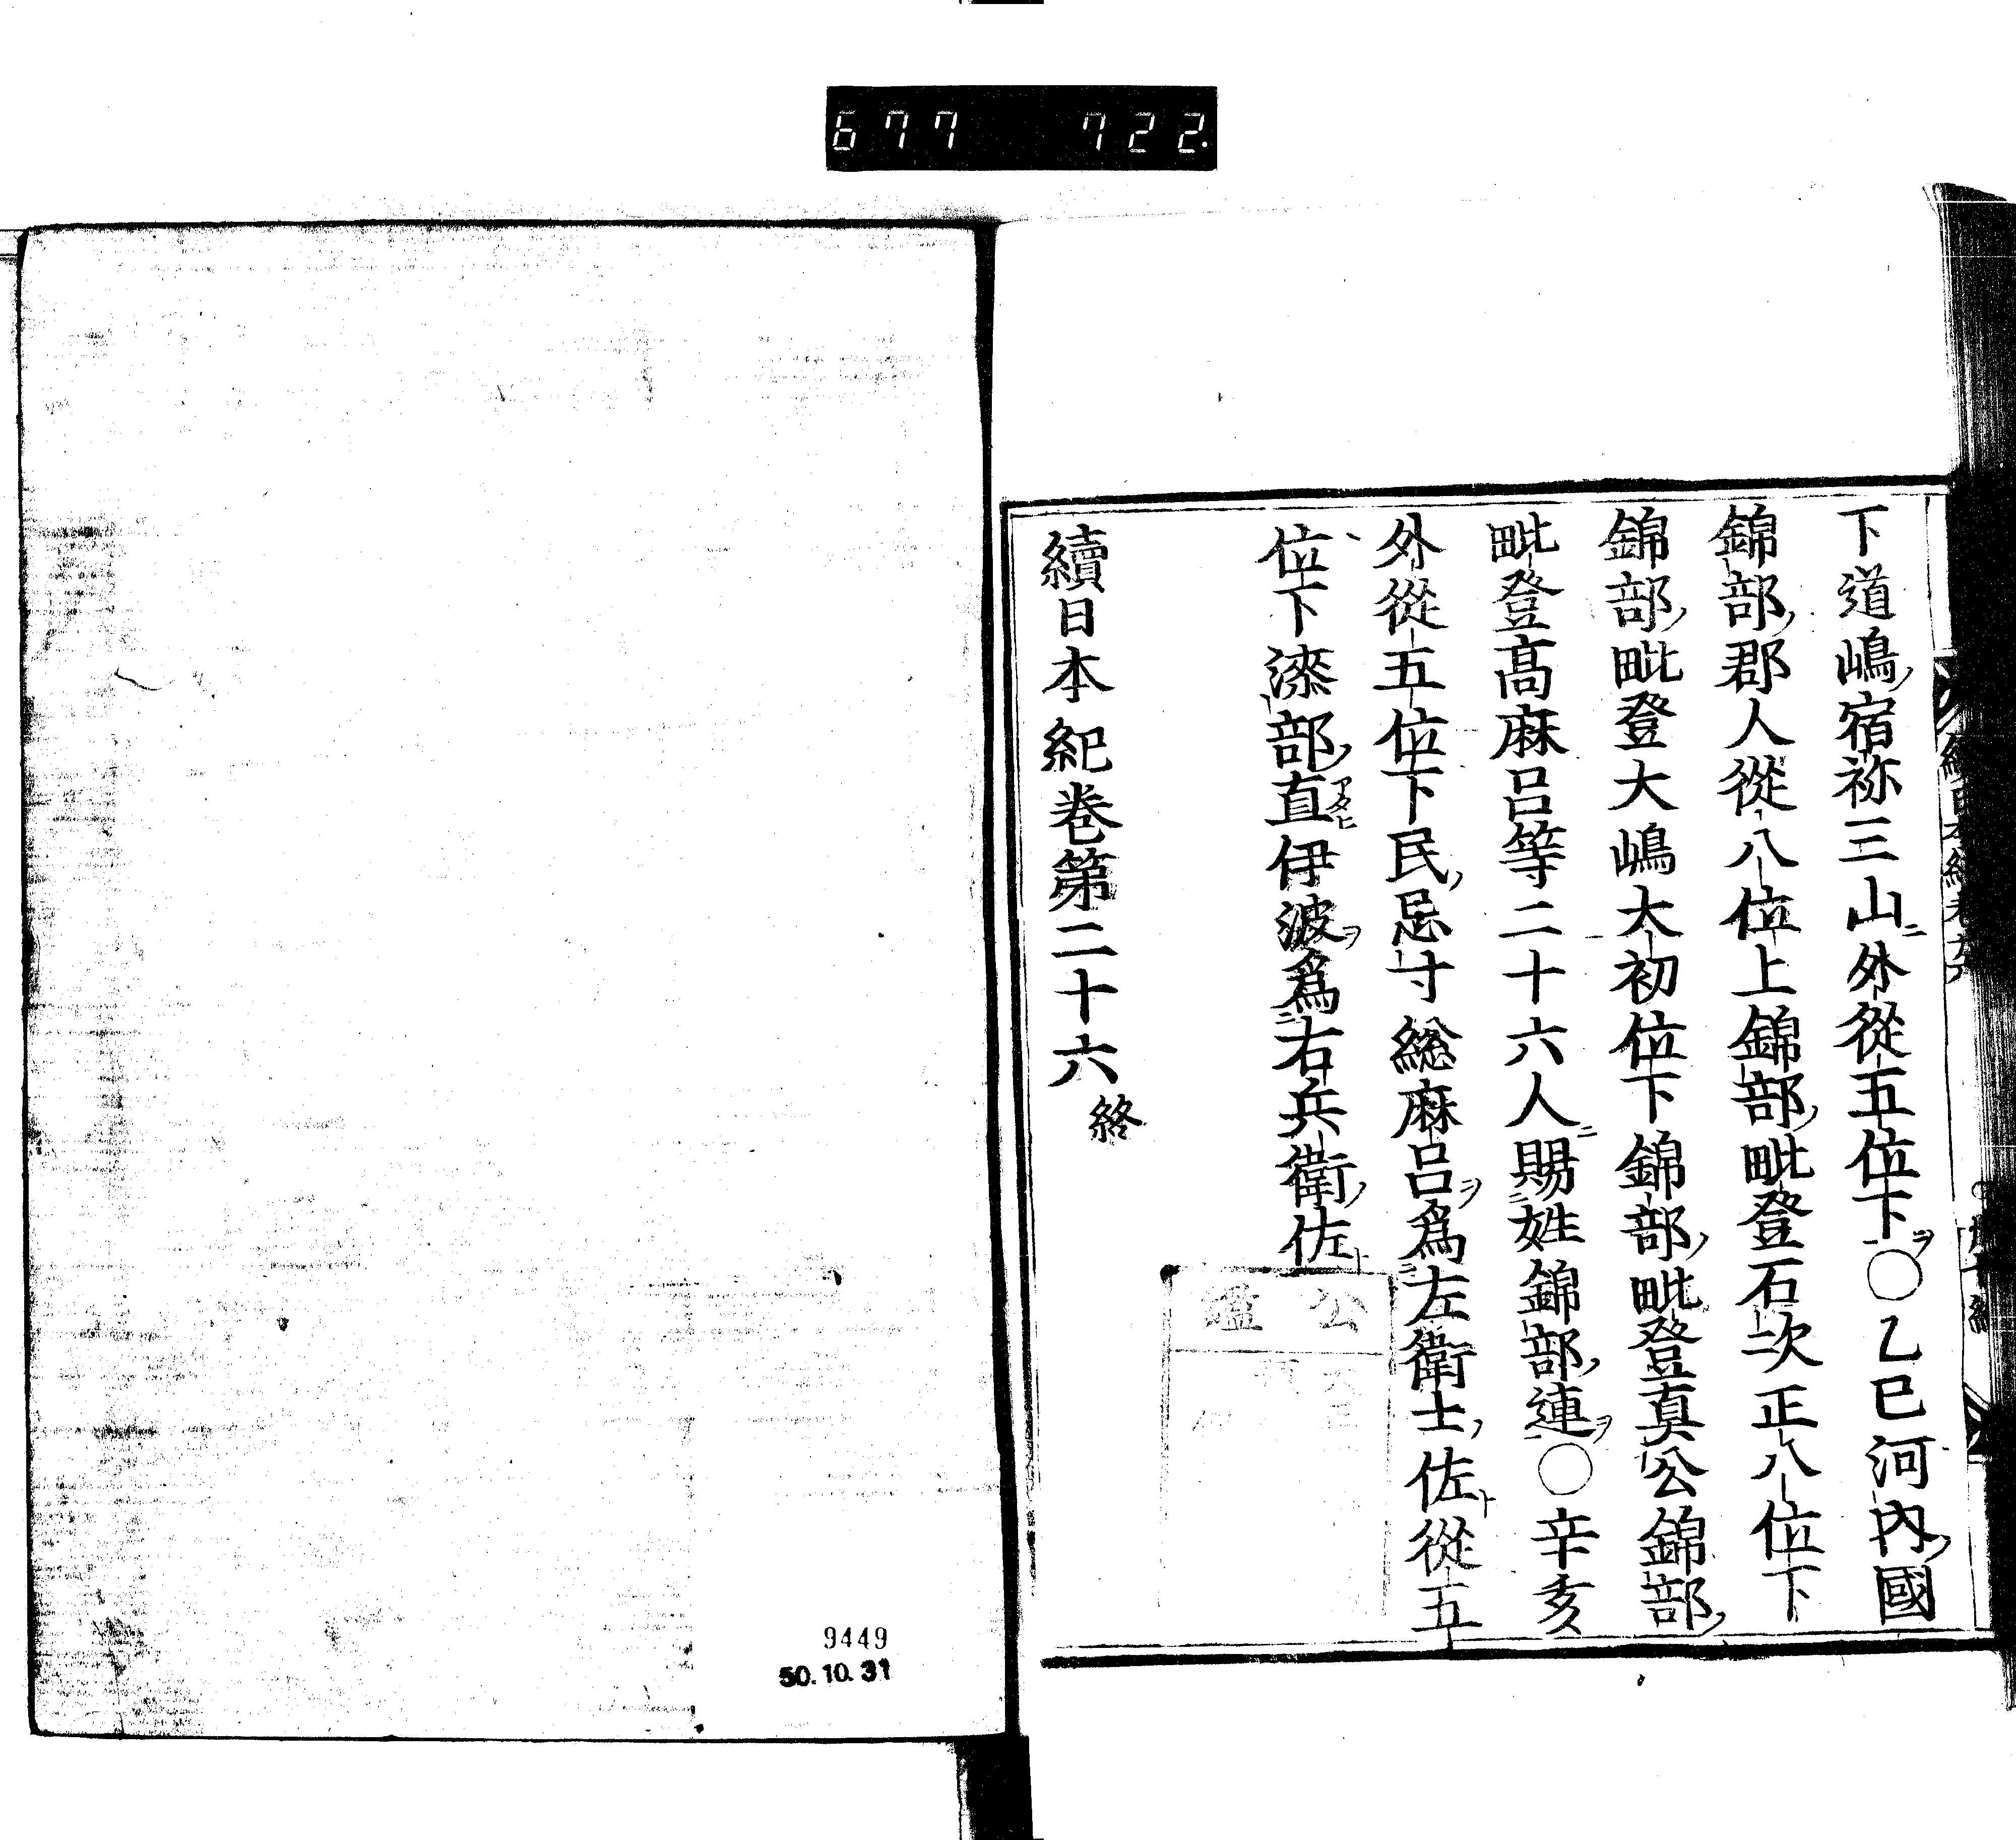 677 722.
下道嶋宿祢三山外從五位下〇乙巳河內國
錦部郡人從八位上錦部毗登石次正八位下
錦部毗登大嶋大初位下錦部毗登真公錦部
毗登髙麻呂等二十六人賜姓錦部連〇辛亥
外從五位下民忌寸総麻呂爲左衛士佐從五
位下漆部直伊波爲右兵衛佐
續日本紀卷第二十六終
9449
50.10.31